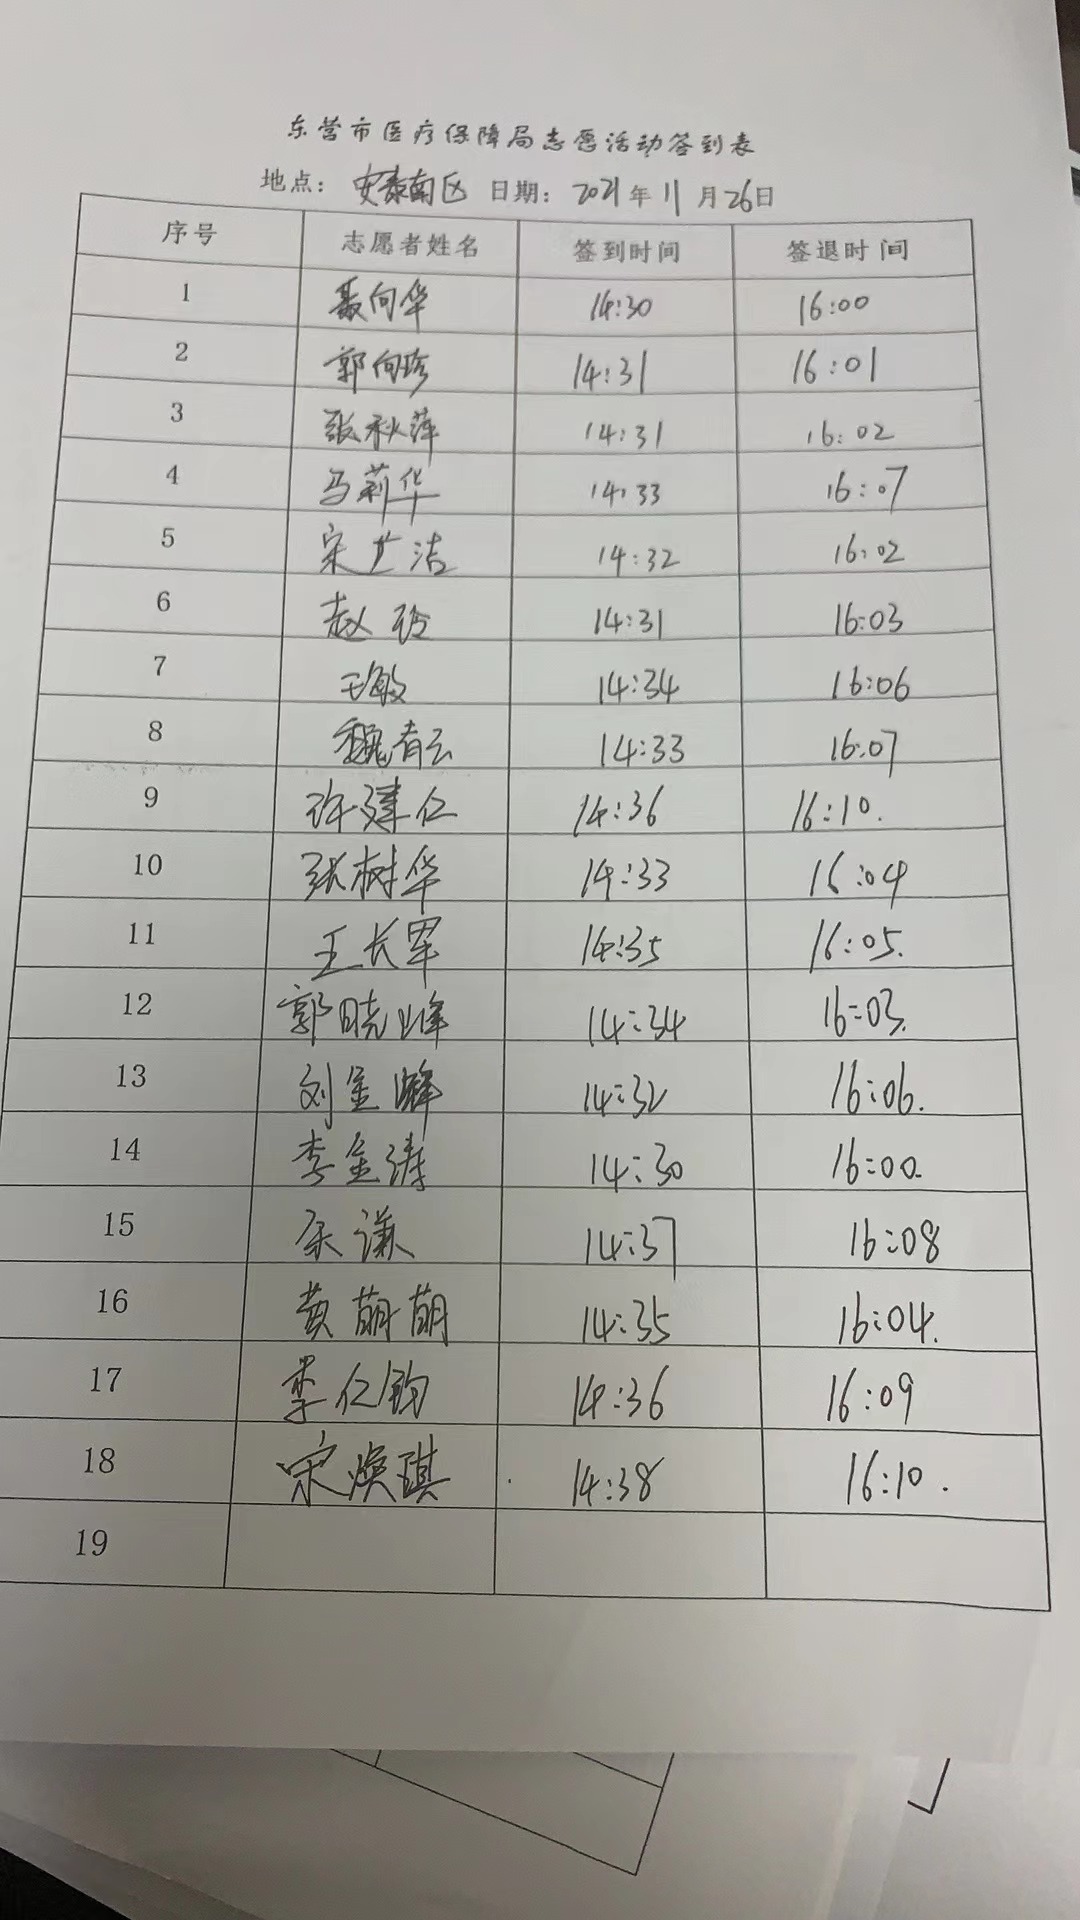 东营市医疗保障局志愿活动签到表
地点: 安泰南区 日期: 2021年11月26日
序号 志愿者姓名 签到时间 签退时间
1 聂向华 14:30 16:00
2 郭向珍 14:31 16:01
3 张秋萍 14:31 16:02
4 马莉华 14:33 16:07
5 宋 洁 14:32 16:02
6 赵玲 14:31 16:03
7 王敏 14:34 16:06
8 魏青云 14:33 16:07
9 许建仁 14:36 16:10.
10 张树华 14:33 16:04
11 王长军 14:35 16:05.
12 郭晓峰 14:34 16:03.
13 刘金 14:32 16:06.
14 李金涛 14:30 16:00.
15 谦 14:37 16:08
16 黄萌萌 14:35 16:04.
17 李仁钧 14:36 16:09
18 宋焕琪 14:38 16:10.
19